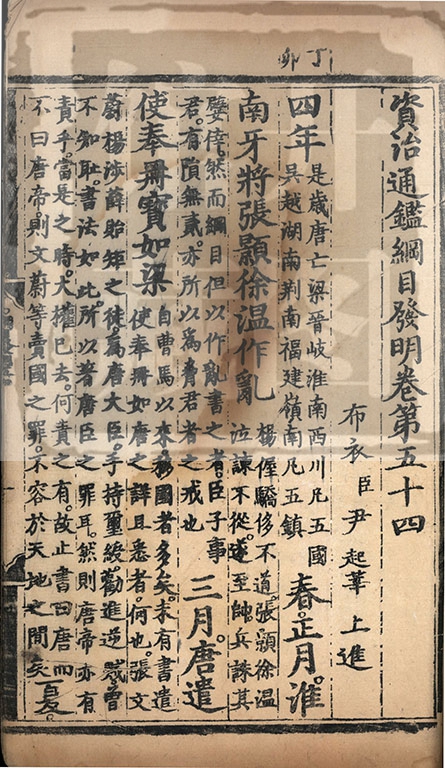 丁卯
資治通鑑綱目發明卷第五十四
布衣臣尹起莘上進
四年
是歲唐亡梁晉岐淮南西川凡五國
吳越湖南荆南福建嶺南凡五鎮
春。正月。淮
南牙將張顥徐温作亂
楊偓驕侈不道。張顥徐温
泣諫不從。遂至帥兵誅其
嬖倖。然而綱目但以作亂書之者。臣子事
君。有隕無貳。亦所以為脅君者之戒也
三月。唐遣
使奉冊寶如梁
自曹馬以來。移國者多矣。未有書遣
使奉冊如唐之詳且悉者。何也。張文
蔚楊涉。薛貽矩之徒。為唐大臣。手持璽綬。勸進逆賊。曾
不知恥。書法如此。所以著唐臣之罪耳。然則唐帝亦有
責乎。當是之時。大權已去。何責之有。故止書曰唐。而
不曰唐帝。則文蔚等賣國之罪。不容於天地之間矣
夏。